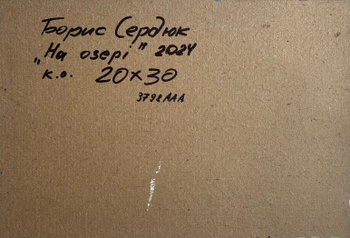 Борис Сердюк
„На озері" 2024
к.о. 20×30
3792ААА